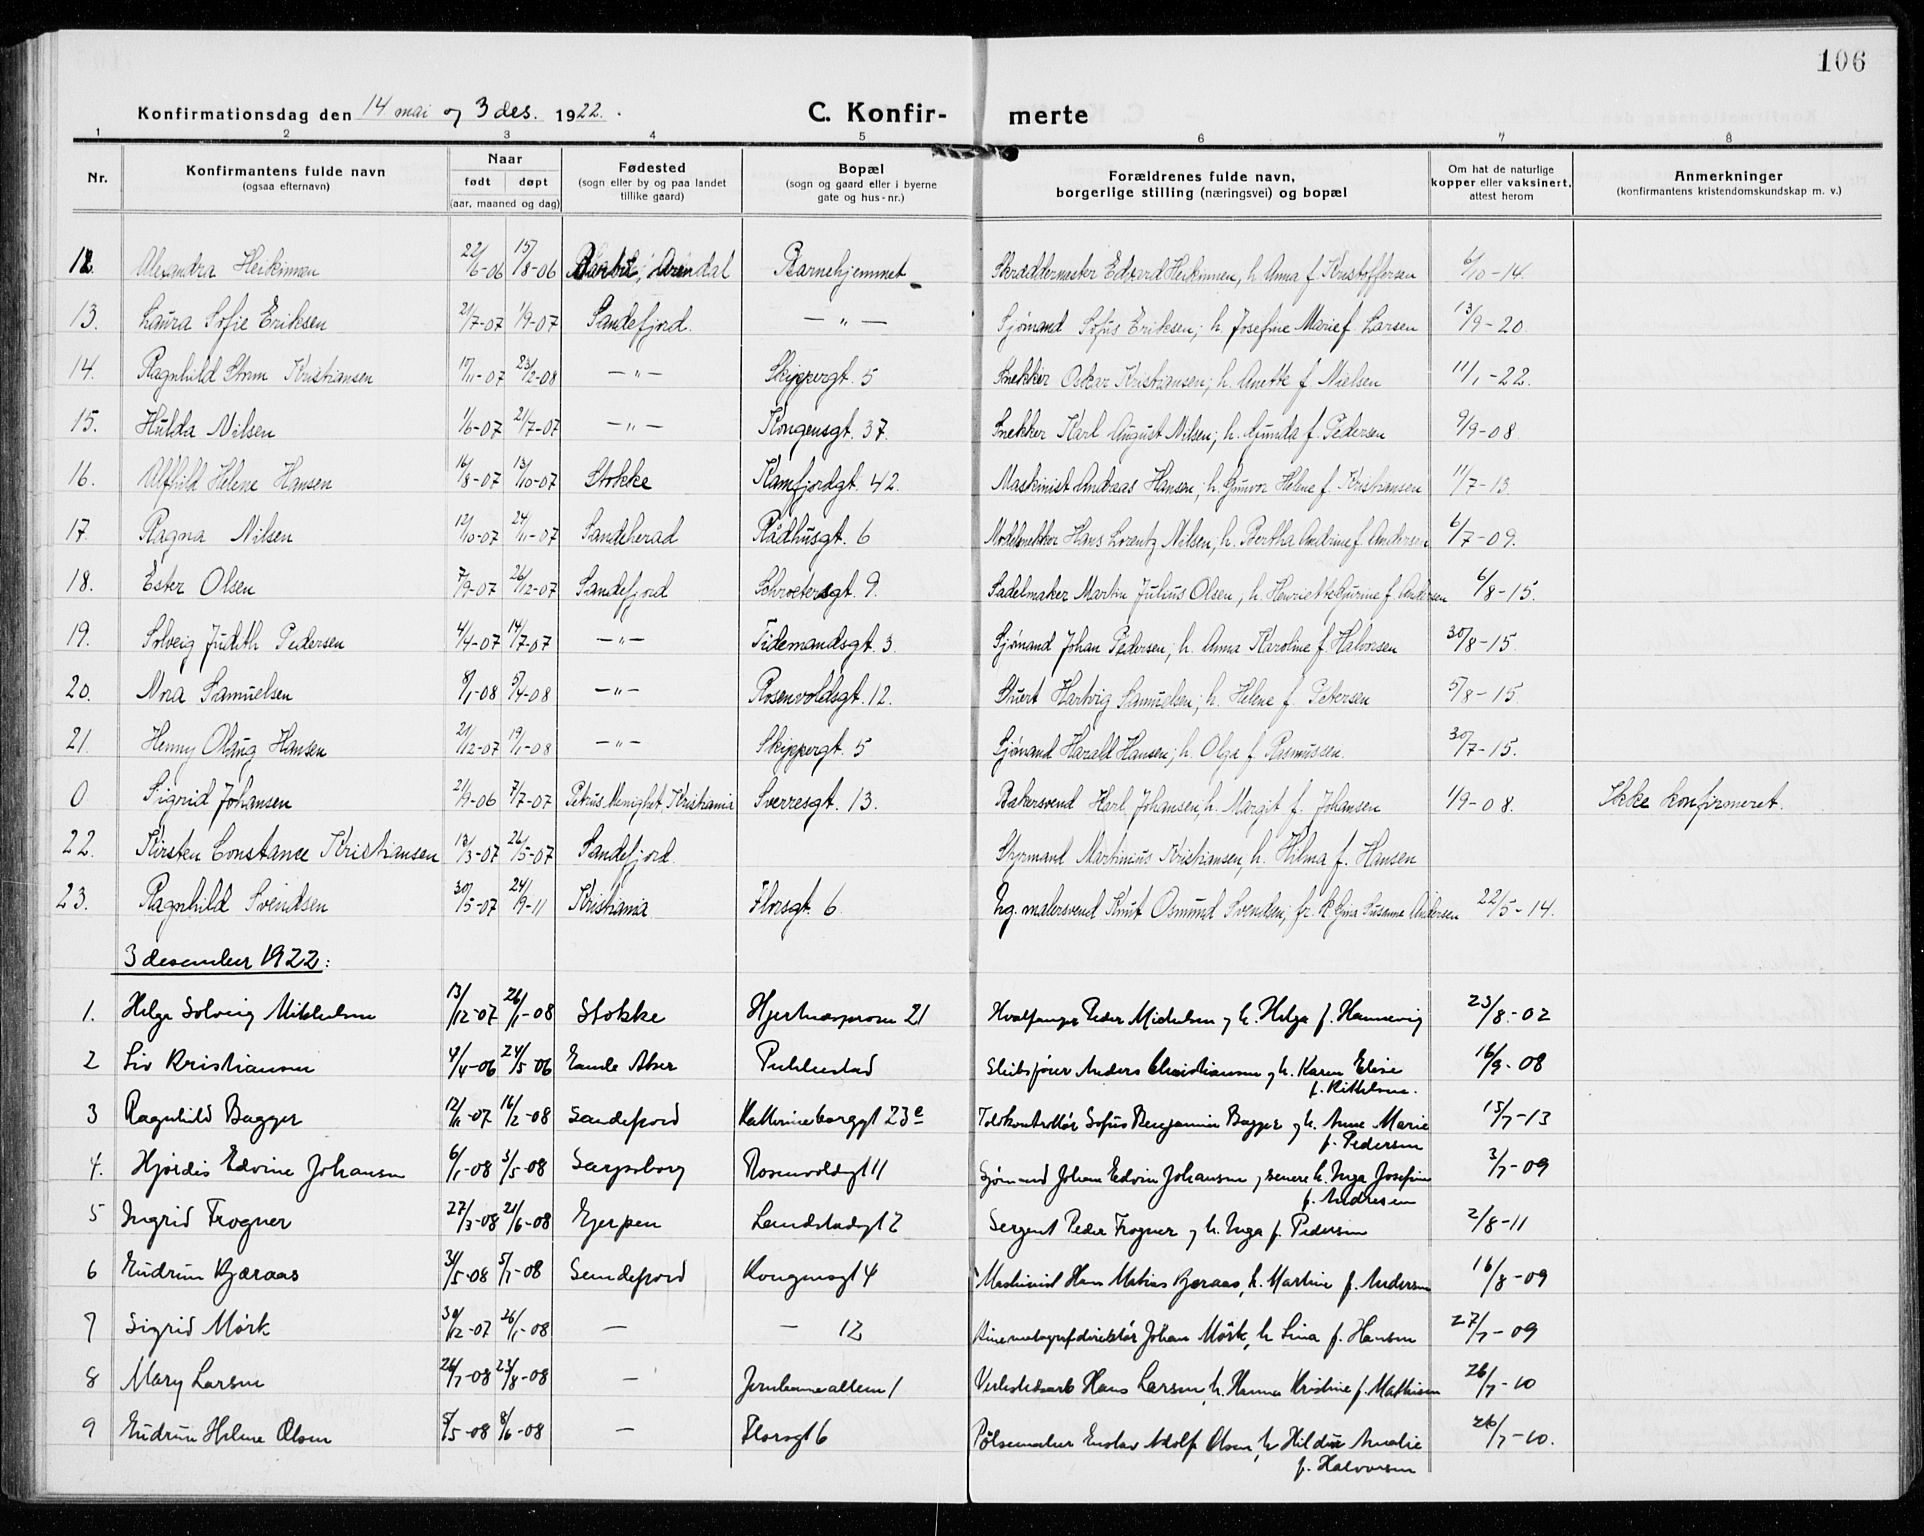 106
Konfirmationsdag den 14 mai og 3 des. 1922.
C. Konfir- merte
1 2 3 4 5 6 7 8
Nr. Konfirmantens fulde navn (ogsaa efternavn) Naar født døpt (aar, maaned og dag) Fødested (sogn eller by og paa landet tillike gaard) Bopæl (sogn og gaard eller i byerne gate og hus-nr.) Forældrenes fulde navn, borgerlige stilling (næringsvei) og bopæl Om hat de naturlige kopper eller vaksinert, attest herom Anmerkninger (konfirmantens kristendomskundskap m. v.)
12. Alexandra Heikinnen 22/6-06 15/8-06 Barbu, Arendal Barnehjemmet Skræddermester Edvard Heikinnen, h. Anna f. Kristoffersen 6/10-14.
13. Laura Sofie Eriksen 21/7-07 1/9-07 Sandefjord. — " — Sjömand Sofus Eriksen; h. Josefine Marie f. Larsen 13/9-20
14. Ragnhild Strøm Kristiansen 17/11-07 23/2-08 — " — Skippergt. 5 Snekker Oskar Kristiansen; h. Anette f. Nielsen 11/1-22.
15. Hulda Nilsen 1/6-07 21/7-07 — " — Kongensgt. 37. Snekker Karl August Nilsen; h. Gunda f. Pedersen 9/9-08.
16. Alfhild Helene Hansen 16/8-07 13/10-07 Stokke Kamfjordgt. 42. Maskinist Andreas Hansen; h. Gunvor Helene f. Kristiansen 11/7-13.
17. Ragna Nilsen 12/10-07 24/11-07 Sandeherad Rådhusgt. 6 Modelsnekker Hans Lorentz Nilsen; h. Bertha Andrine f. Andersen 6/7-09.
18. Ester Olsen 7/9-07 26/12-07 Sandefjord Schrøtersgt. 9. Sadelmaker Martin Julius Olsen, h. Henriette Gurine f. Andersen 6/8-15.
19. Solveig Judith Pedersen 4/4-07 14/7-07 — " — Tidemandsgt. 3. Sjömand Johan Pedersen; h. Anna Karoline f. Halvorsen 30/8-15.
20. Nora Samuelsen 8/1-08 5/4-08 — " — Rosenvoldsgt. 12. Stuert Hartvig Samuelsen; h. Helene f. Petersen 5/8-15.
21. Henny Olaug Hansen 21/12-07 19/1-08 — " — Skippergt. 5 Sjömand Harald Hansen; h. Olga f. Rasmussen. 30/7-15.
0 Sigrid Johansen 21/9-06 7/7-07 Petrus Menighet, Kristiania Sverresgt. 13. Bakersvend Karl Johansen, h. Margit f. Johansen 1/9-08. Ikke konfirmeret.
22. Kirsten Constance Kristiansen 13/3-07 26/5-07 Sandefjord. Styrmand Martinius Kristiansen, h. Hilma f. Hansen
23. Ragnhild Svendsen 30/5-07 24/9-11 Kristiania Florsgt. 6 Ug. malersvend Knut Osmund Svendsen; fr. Gina Susanne Andersen 22/5-14.
3 desember 1922:
1. Helga Solveig Mikkelsen 13/12-07 26/1-08 Stokke Hjertnæsprom 21 Hvalfanger Peder Mickelsen og h. Helga f. Hannevig 23/8-02
2 Liv Kristiansen 4/4-06 24/5-06 Puklestad Skibsfører Anders Christiansen og h. Karen Elise
f. Kittelsen.
3 Ragnhild Bagger 12/11-07 16/2-08 Sandefjord Kathrineborggt 23e Toldkontrollør Sofus Benjamin Bagger og h. Anne Marie 15/7-13
f. Pedersen
4. Hjørdis Edvine Johansen 6/1-08 3/5-08 Sarpsborg Rosenvoldsgt 11 Sjømand Johan Edvin Johansen og senere h. Inga Josefine 3/7-09
f. Andresen
5 Ingrid Frogner 27/3-08 21/6-08 Gjerpen Landstadsgt 2 Sergent Peder Frogner og h. Inga f. Pedersen 2/8-11
6 Gudrun Bjæraas 31/5-08 5/7-08 Sandefjord Kongensgt 4 Maskinist Hans Matias Bjeraas, h. Martine f. Andersen 16/8-09
7 Sigrid Mørk 30/12-07 26/1-08 — — 12 Kinematografdirektør Johan Mørk, h Lina f. Hansen 27/7-09
8 Mary Larsen 26/7-08 23/8-08 — Jernbanealleen 1 Verkstedsarb Hans Larsen h. Hanna Kristine f. Mathisen 26/7-10
9 Gudrun Helene Olsen 5/5-08 8/6-08 — Florsgt 6 Pølsemaker Gustav Adolf Olsen, h Hildur Amalie 26/7-10.
f. Halvorsen